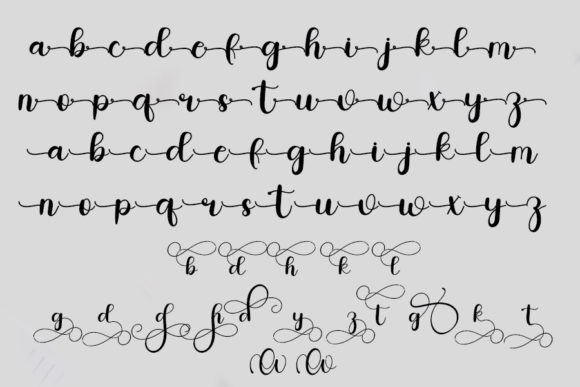 a b c d e f g h i j k l m
n o p q r s t u v w x y z
a b c d e f g h i j k l m
n o p q r s t u v w x y z
b d h k l
g d f h d y z t g k t